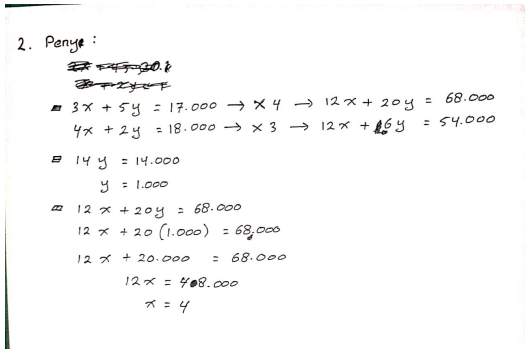 2. Penye :
3x + 5y = 17.000 → × 4 → 12x + 20y = 68.000
4x + 2y = 18.000 → × 3 → 12x + 6y = 54.000
14 y = 14.000
y = 1.000
12 x + 20y = 68.000
12 x + 20 (1.000) = 68.000
12 x + 20.000 = 68.000
12 x = 48.000
x = 4